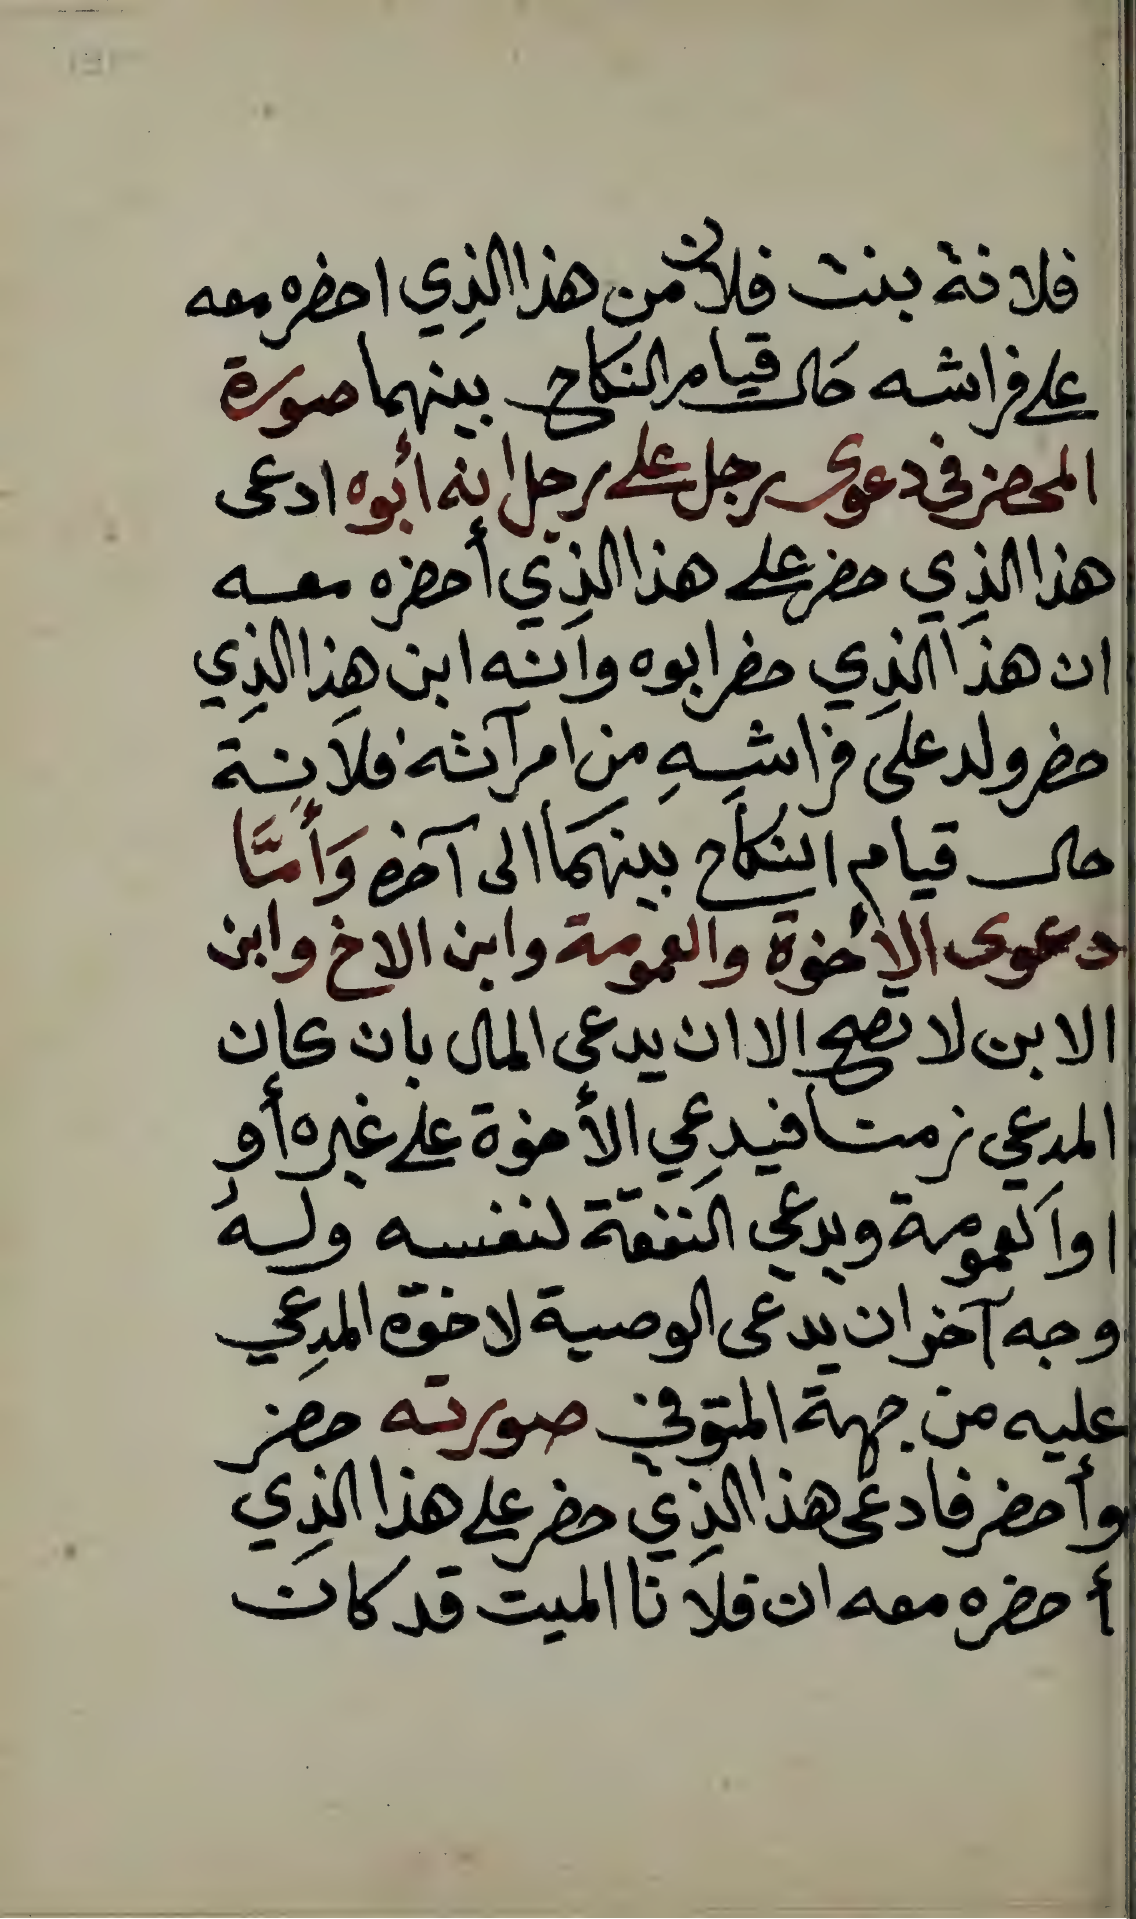 فلانة بنت فلان من هذا الذي احضره معه
على فراشه حال قيام النكاح بينهما صورة
المحضر في دعوى رجل على رجل انه أبوه ادعى
هذا الذي حضر على هذا الذي أحضره معه
ان هذا الذي حضر ابوه وانه ابن هذا الذي
حضر ولد على فراشه من امرآته فلانة
حال قيام النكاح بينهما الى آخره وَأَمَّا
دعوى الأخوة والعمومة وابن الاخ وابن
الابن لا تصح الا ان يدعى المال بان كان
المدعي زمنا فيدعي الأخوة على غيره أو
او العمومة ويدعي النفقة لنفسه وله
وجه آخر ان يدعى الوصية لاخوة المدعي
عليه من جهة المتوفي صورته حضر
وأحضر فادعى هذا الذي حضر على هذا الذي
أحضره معه ان فلانا الميت قد كان